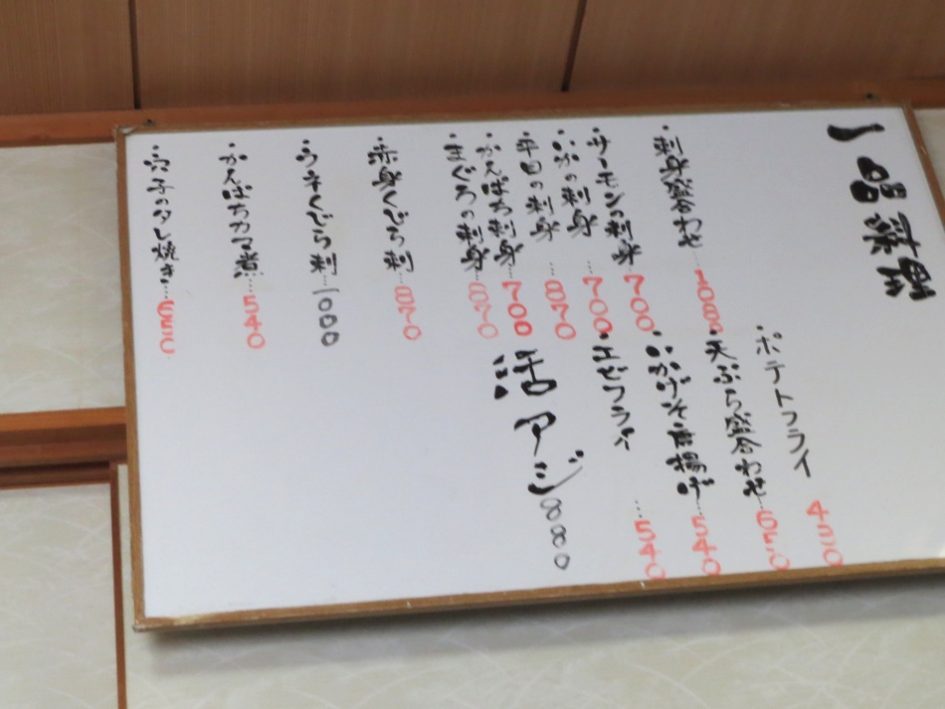 一品料理
・刺身盛合わせ…1080
・サーモンの刺身…700
・いかの刺身…700
・平目の刺身…870
・かんぱち刺身…700
・まぐろの刺身…870
・赤身くじら刺…870
・うネくじら刺…1000
・かんぱちカマ煮…540
・穴子のタレ焼き…650
・ポテトフライ 430
・天ぷら盛合わせ…650
・いかげそ唐揚げ…540
・エビフライ…540
活アジ 880